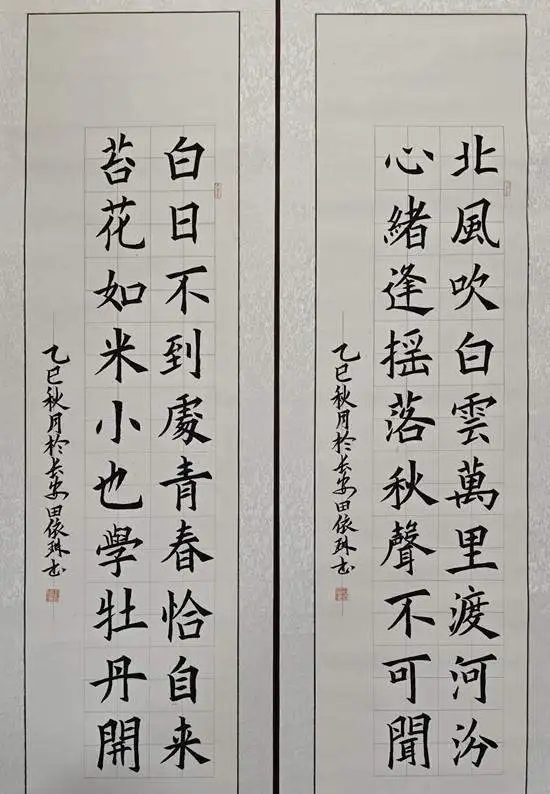 北風吹白雲萬里渡河汾
心緒逢摇落秋聲不可聞
乙巳秋月於长安田依琳书
白日不到處青春恰自来
苔花如米小也學牡丹開
乙巳秋月於长安田依琳书